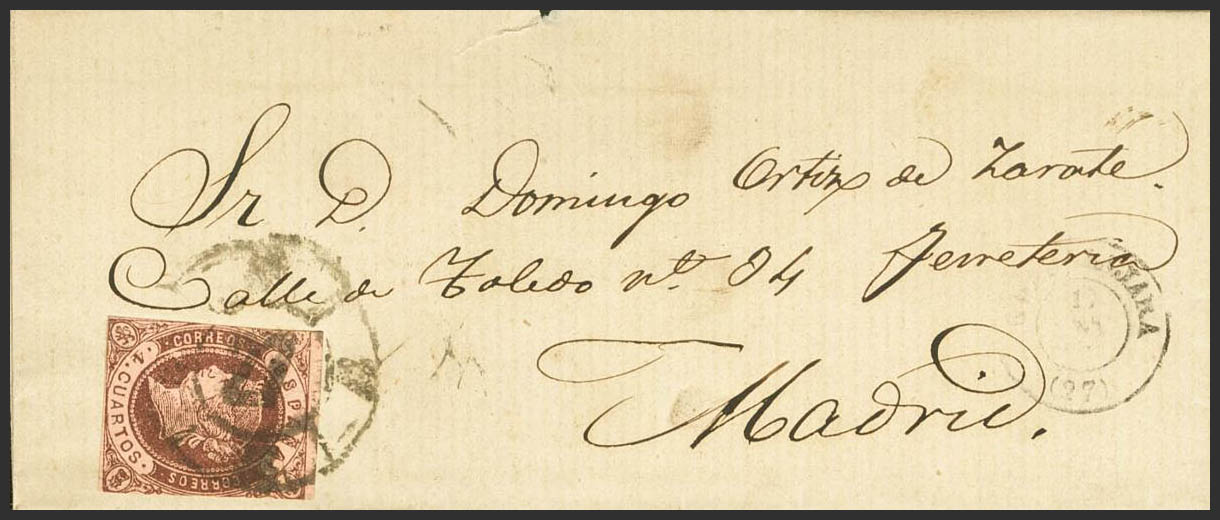 Sr D. Domingo Ortiz de Zarate.
Calle de Toledo nº 84 Ferreteria
Madrid.
CORREOS
4 CUARTOS.
ESPAÑA
CORREOS
JARA
(27)